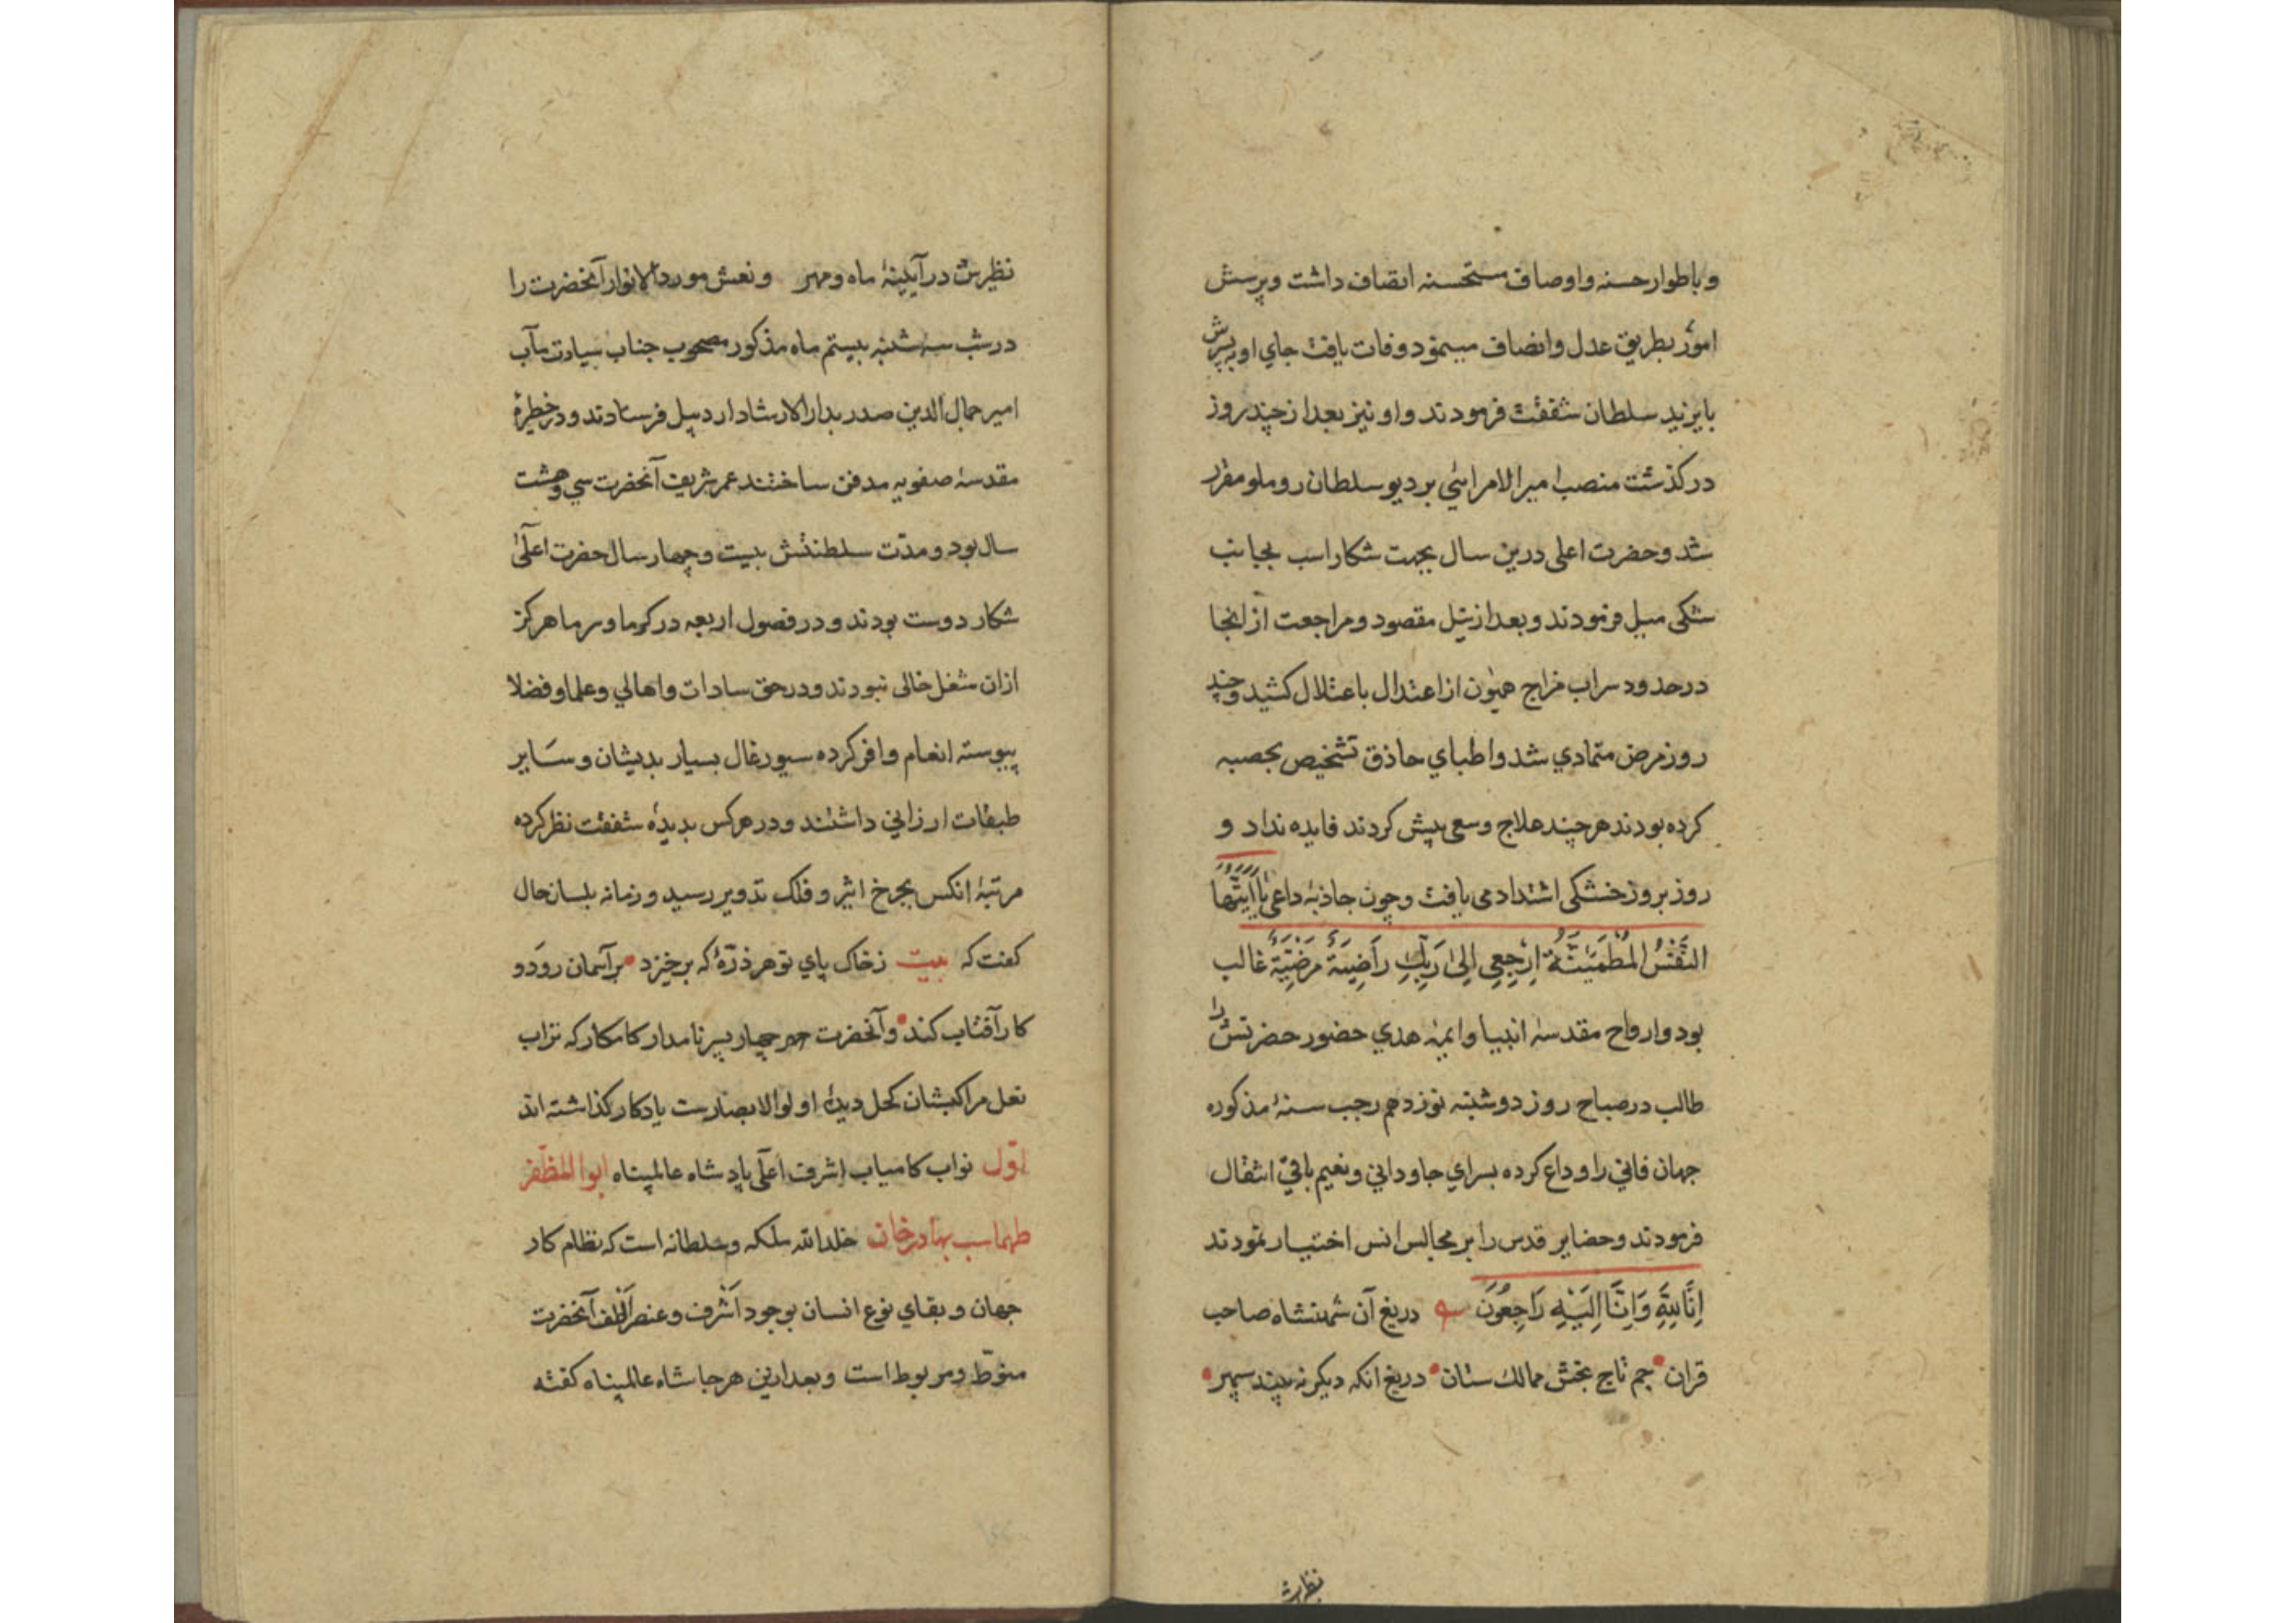 و باطوار حسنه و اوصاف مستحسنه اتصاف داشت و پرسش
امور بطریق عدل و انصاف مینمود وفات یافت جاي او به پسرش
بایزید سلطان شفقت فرمودند و او نیز بعد از چند روز
درکذشت منصب امیر الامرائي بر دیو سلطان روملو مقرر
شد و حضرت اعلی درین سال بجهت شکار اسب بجانب
شکی میل فرمودند و بعد از نیل مقصود و مراجعت از انجا
در حدود سراب مزاج همیون از اعتدال باعتلال کشید و چند
روز مرض متمادي شد و اطباي حاذق تشخیص بحصبه
کرده بودند هر چند علاج و سعی پیش کردند فایده نداد و
روز بروز خشکی اشتداد می یافت و چون جاذبهٔ داعی یَا اَیَّتُهَا
النَّفْسُ الْمُطْمَئِنَّةُ ارْجِعِی اِلیٰ رَبِّكِ رَاضِیَةً مَرْضِیَّةً غالب
بود و ارواح مقدسهٔ انبیا و ایمهٔ هدي حضور حضرتش را
طالب در صباح روز دوشنبه نوزدهم رجب سنهٔ مذکوره
جهان فاني را وداع کرده بسراي جاوداني و نعیم باقي انتقال
فرمودند و حضایر قدس را بر مجالس انس اختیار نمودند
اِنَّا لِلّٰهِ وَاِنَّا اِلَیْهِ رَاجِعُونَ دریغ آن شهنشاه صاحب
قران جم تاج بخش ممالك ستان دریغ انکه دیکر نه بیند سپهر
نظیرش
نظیرش در آیینهٔ ماه و مهر و نعش مورد الانوار آنحضرت را
در شب سه شنبه بیستم ماه مذکور مصحوب جناب سیادت مآب
امیر جمال الدین صدر بدار الارشاد اردبیل فرستادند و در خطیرهٔ
مقدسهٔ صفویه مدفن ساختند عمر شریف آنحضرت سي و هشت
سال بود و مدّت سلطنتش بیست و چهار سال حضرت اعلیٰ
شکار دوست بودند و در فصول اربعه در کرما و سرما هرکز
ازان شغل خالی نبودند و در حق سادات و اهالي و علما و فضلا
پیوسته انعام وافر کرده سیورغال بسیار بدیشان و سَایر
طبقات ارزاني داشتند و در هر کس بدیدهٔ شفقت نظر کرده
مرتبهٔ انکس بچرخ اثیر و فلک تدویر رسید و زمانه بلسان حال
کفت که بیت ز خاک پاي تو هر ذرّهٔ که برخیزد بر آسمان رَوَد و
کار آفتاب کند و آنحضرت چهار پسر نامدار کامکار که تراب
نعل مراکبشان کحل دیدهٔ اولو الابصارست یادکار کذاشته اند
اوّل نواب کامیاب اشرف اعلی پادشاه عالمپناه ابوا المظفر
طهماسب بهادرخان خلد الله ملکه و سلطانه است که نظام کار
جهان و بقاي نوع انسان بوجود اَشْرف و عنصر اَلْطف آنحضرت
منوّط و مربوط است و بعد ازین هر جا شاه عالمپناه کفته